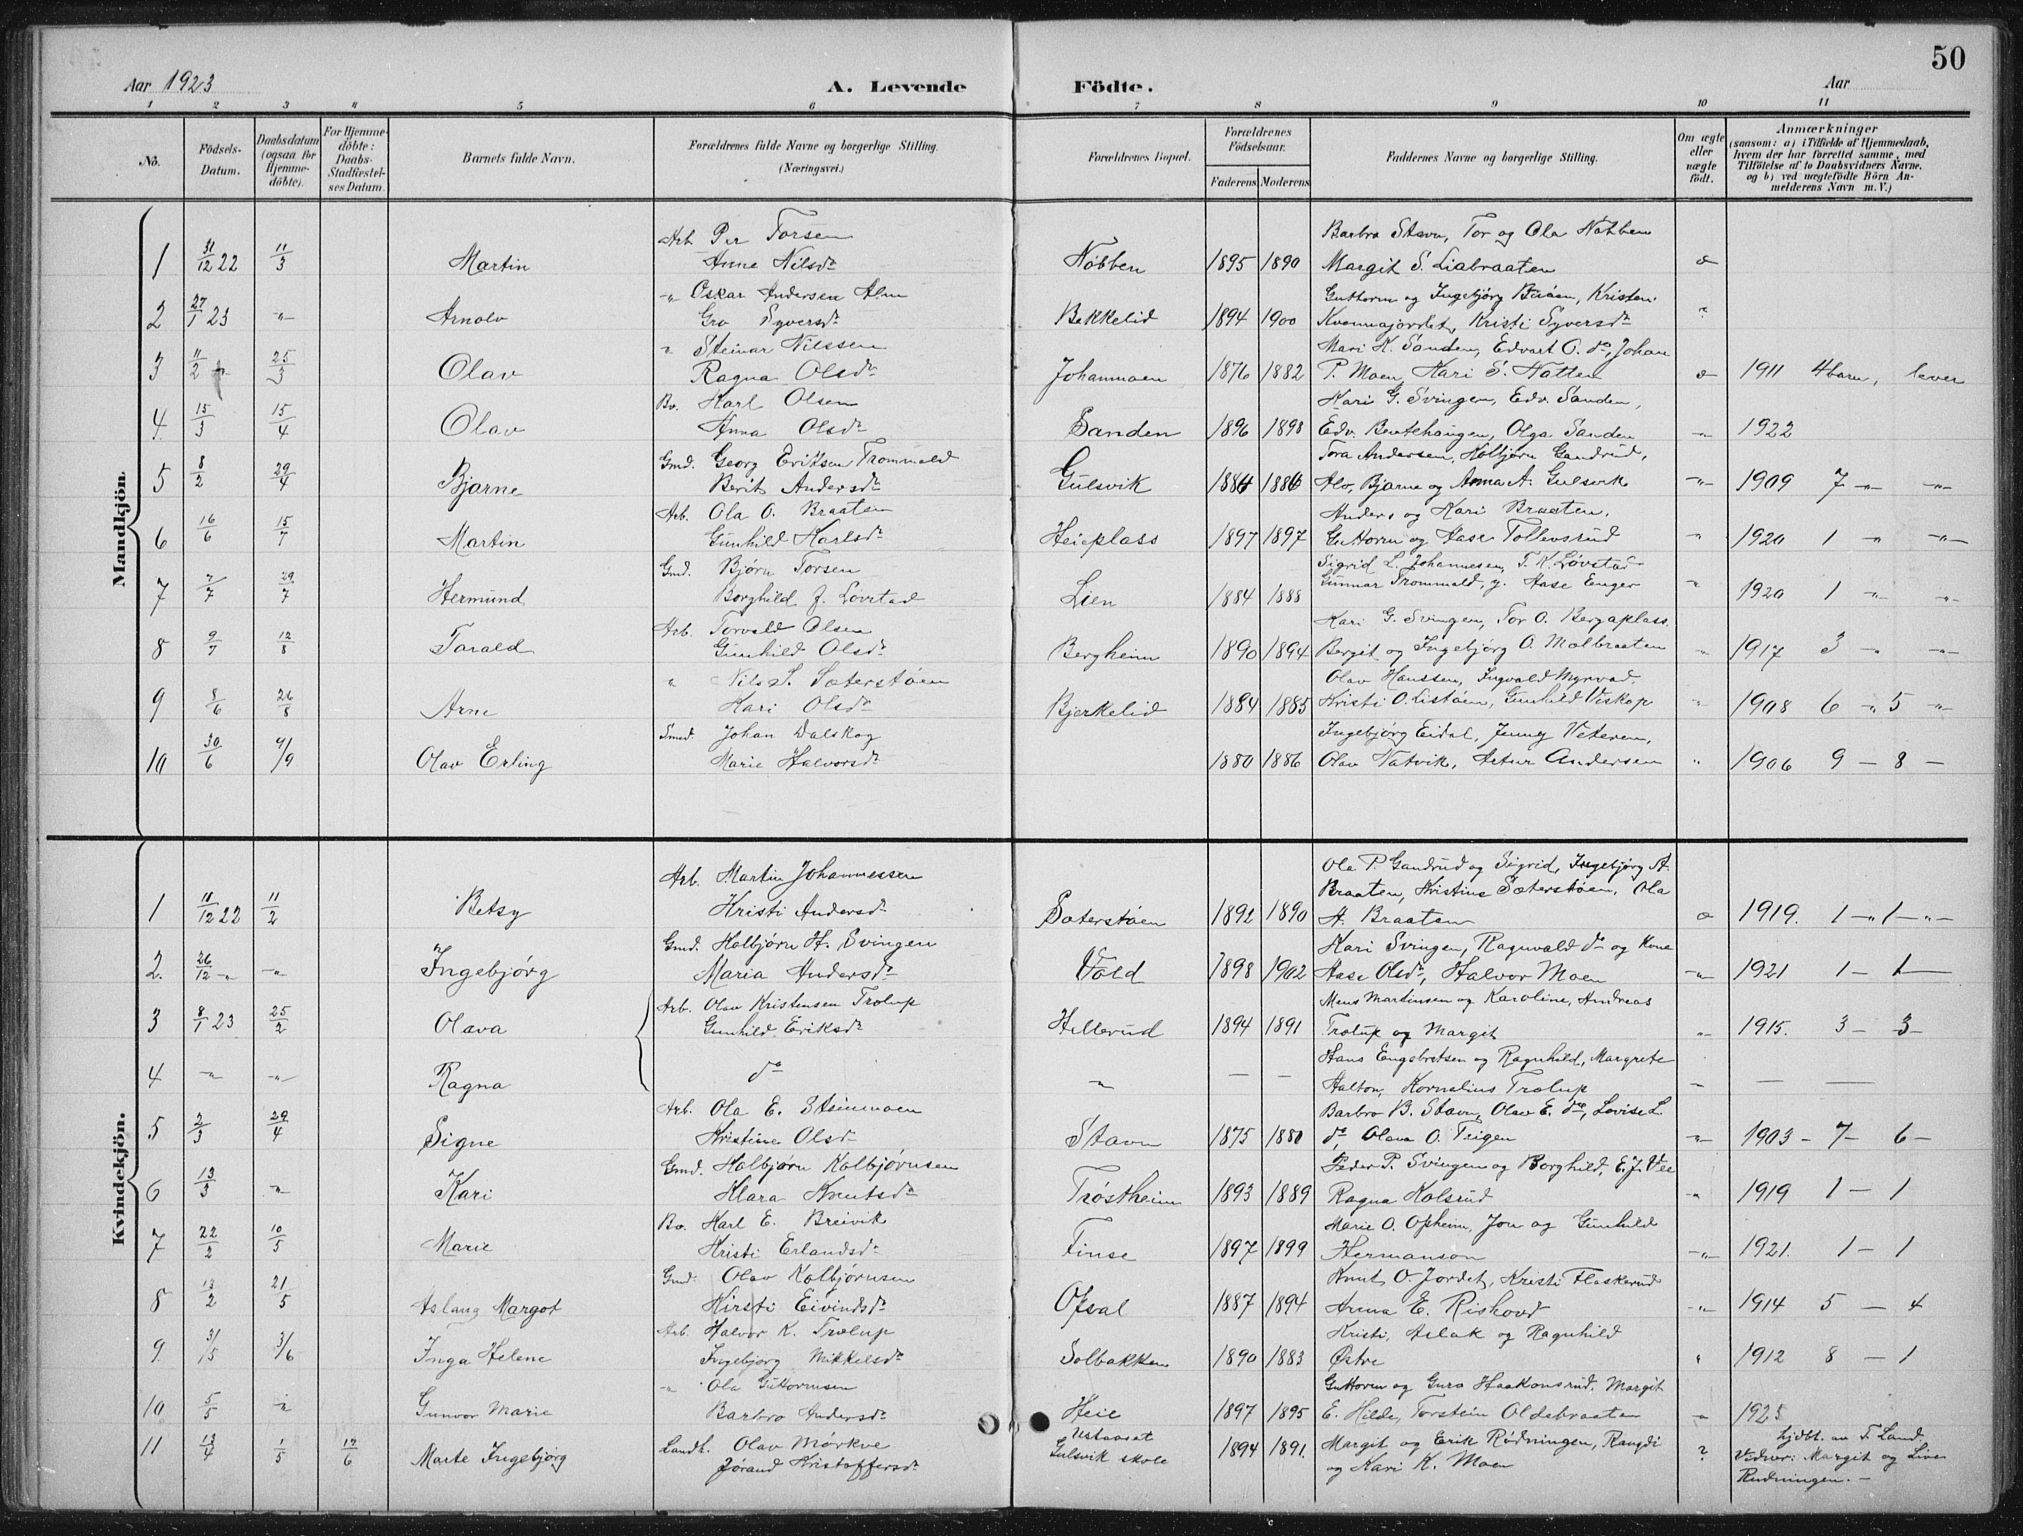 50
Aar 1923 A. Levende Födte. Aar
1 2 3 4 5 6 7 8 9 10 11
No.
Födsels-
Datum.
Daabsdatum
(ogsaa for
Hjemme-
döbte).
For Hjemme-
döbte:
Daabs-
Stadfæstel-
ses Datum.
Barnets fulde Navn.
Forældrenes fulde Navne og borgerlige Stilling.
(Næringsvei.)
Forældrenes Bopæl.
Forældrenes
Födselsaar.
Faderens. Moderens.
Faddernes Navne og borgerlige Stilling.
Om ægte
eller
uægte
født.
Anmærkninger
(saasom: a) i Tilfælde af Hjemmedaab,
hvem der har forrettet samme, med
Tilföielse af to Daabsvidners Navne.
og b) ved uægtefödte Börn An-
melderens Navn m. V.)
Mandkjön.
Arb Per Torsen Barbro Stavn, Tor og Ola Nöbben
1 31/12 22 11/3 Martin Anne Nilsdr Nöbben 1895 1890 Margit S. Liabraaten
-"- Oskar Andersen Alm Guttorm og Ingebjörg Kristen
2 27/1 23 -"- Arnolv Gro Syversdr Bekkelid 1894 1900 Kristi Syversdr
" Steinar Nilssen Mari K. Sanden, Edvart O. do, Johan
3 11/2 25/3 Olav Ragna Olsdr Johanmoen 1876 1882 P. Moen, Kari S. Hatten 1911 4 barn, lever
Bo. Karl Olsen Kari G. Svingen, Edv. Sanden,
4 15/3 15/4 Olav Anna Olsdr Sanden 1896 1898 Edv. Bentehaugen, Olga Sanden -"- 1922
Gmd. Georg Eriksen Trommald Tora Andersen, Kolbjörn Gandrud,
5 8/2 29/4 Bjarne Berit Andersdr Gulsvik 1884 1886 Alv, Bjarne og Anna A. Gulsvik -"- 1909 7 -"- -"-
Arb. Ola O. Braaten Anders og Kari Braaten,
6 16/6 15/7 Martin Gunhild Karlsdr Heieplass 1897 1897 Guttorm og Aase Tollevsrud " 1920 1 " -"-
Gmd. Bjørn Torsen Sigrid L. Johannesen, T. K. Lövstad
7 7/7 29/7 Hermund Borghild J. Lövstad Lien 1884 1888 Gunnar Trommald, y. Aase Enger " 1920 1 -"- -"-
Arb. Torvald Olsen Kari G. Svingen, Tor O. Bergaplass.
8 9/7 12/8 Tarald Gunhild Olsdr Bergheim 1890 1894 Bergit og Ingebjörg O. Molbraaten " 1917 3 " -"-
" Nils S. Sæterstöen Olav Hanssen, Ingvald Myrvad.
9 8/6 26/8 Arne Kari Olsdr Bjerkelid 1884 1885 Kristi O. Listöen, Gunhild Viskop " 1908 6 -"- 5 -"-
Smed. Johan Dalskog Ingebjörg Eidal, Jenny Veteren,
10 30/6 9/9 Olav Erling Marie Halvorsdr 1880 1886 Olav Vatvik, Artur Andersen " 1906 9 - 8 -
Kvindekjön.
Arb. Martin Johannessen Ola P. Gandrud og Sigrid, Ingebjörg A.
Braaten, Kristine Sæterstöen, Ola
1 10/12 22 11/2 Betsy Kristi Andersdr Sæterstöen 1892 1890 A. Braaten 1919. 1 -"- 1 -"-
Gmd. Kolbjörn H. Svingen Kari Svingen, Ragnvald do og Kone
2. 26/12 -"- -"- Ingebjörg Maria Andersdr Vold 1898 1902 Aase Olsdr, Halvor Moen -"- 1921 1 - 1 -
Arb. Olav Kristensen Trolup Mens Martinsen og Karoline, Andreas
3 8/1 23 25/2 Olava Gunhild Eriksdr Hillerud 1894 1891 Trolup og Margit " 1915. 3 - 3 -
Hans Engebretsen og Ragnhild, Margrete
4 -"- -"- Ragna do -"- - - Halton, Kornelius Trolup - - -
Arb. Ola E. Steinmoen Barbro B. Stavn, Olav E. do, Lovise L.
5 2/3 29/4 Signe Kristine Olsdr Stavn 1875 1880 do, Olava O. Teigen -"- 1903 - 7 - 6 -
Gmd. Kolbjörn Kolbjörnsen Peder P. Svingen og Borghild, E. J. Vee
6 13/3 " Kari Klara Knutsdr Tröstheim 1893 1889 Ragna Kolsrud " 1919 1 - 1
Bo. Karl E. Breivik Marie O. Opheim, Jon og Gunhild
7 22/2 10/5 Marie Kristi Erlandsdr Finse 1897 1899 Hermanson -"- 1921. 1 - 1
Gmd. Olav Kolbjörnsen Knut O. Jordet, Kristi Flaskerud
8 13/2 21/5 Aslaug Margot Kirsti Eivindsdr Opsal 1887 1894 Anna E. Rishovd -"- 1914 5 - 4
Arb. Halvor K. Trolup Kristi, Aslak og Ragnhild
9. 31/5 3/6 Inga Helene Ingebjörg Mikkelsdr Solbakken 1890 1883 Østre " 1912 8 - 1
-"- Ola Guttormsen Guttorm og Guro Haakonsrud, Margit
10 5/5 " Gunvor Marie Barbro Andersdr Heie 1897 1895 E. Hilde, Torstein Oldebraaten " 1925
11 13/4 1/5 17/6 Marte Ingebjörg Landh. Olav Mörkve Ustaoset 1894 1891. Margit og Erik Rudningen, Rangdi ? hjdbt. av T. Land.
Jörand Kristoffersdr Gulsvik skole og Kari K. Moen Vidner: Margit og Liv
Rudningen. -